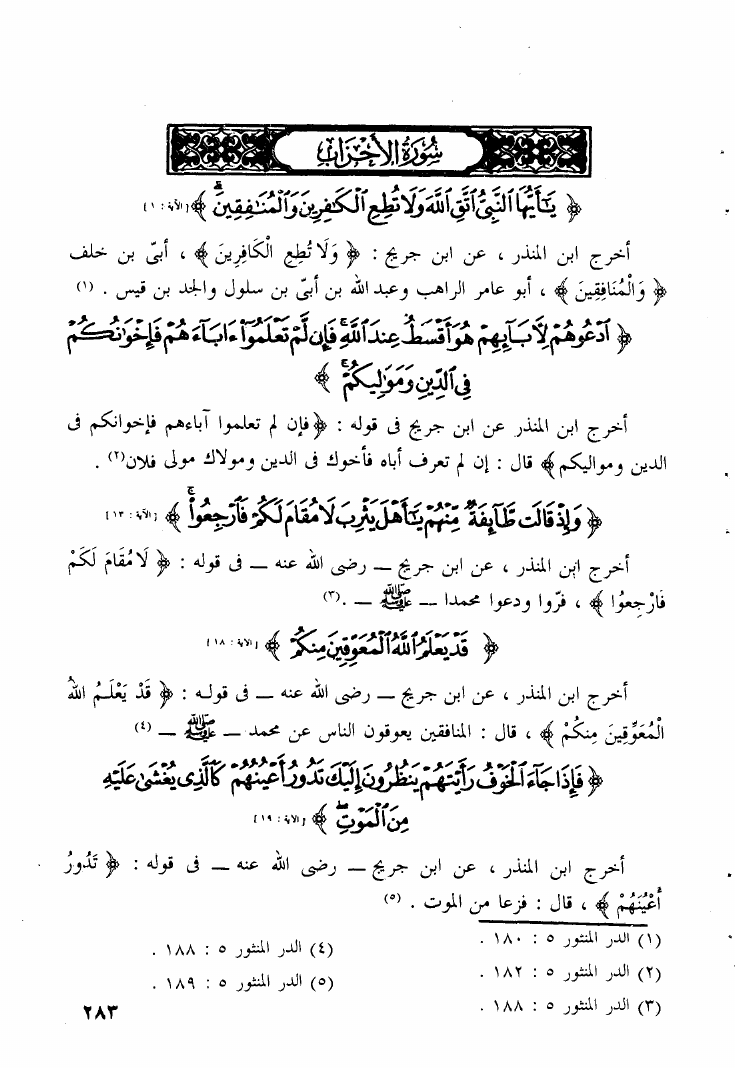 سُورَةُ الأَحْزَابِ
﴿ يَٰٓأَيُّهَا ٱلنَّبِىُّ ٱتَّقِ ٱللَّهَ وَلَا تُطِعِ ٱلْكَٰفِرِينَ وَٱلْمُنَٰفِقِينَ ۗ ﴾ [الآية : ١]
أخرج ابن المنذر ، عن ابن جريج : ﴿ وَلَا تُطِعِ الْكَافِرِينَ ﴾ ، أبىّ بن خلف
﴿ وَالْمُنَافِقِينَ ﴾ ، أبو عامر الراهب وعبد الله بن أبىّ بن سلول والجد بن قيس . (١)
﴿ ٱدْعُوهُمْ لِأَبَآئِهِمْ هُوَ أَقْسَطُ عِندَ ٱللَّهِ ۚ فَإِن لَّمْ تَعْلَمُوٓا۟ ءَابَآءَهُمْ فَإِخْوَٰنُكُمْ
فِى ٱلدِّينِ وَمَوَٰلِيكُمْ ۚ ﴾
أخرج ابن المنذر عن ابن جريج فى قوله : ﴿ فإن لم تعلموا آباءهم فإخوانكم فى
الدين ومواليكم ﴾ قال : إن لم تعرف أباه فأخوك فى الدين ومولاك مولى فلان(٢) .
﴿ وَإِذْ قَالَت طَّآئِفَةٌ مِّنْهُمْ يَٰٓأَهْلَ يَثْرِبَ لَا مُقَامَ لَكُمْ فَٱرْجِعُوا۟ ۚ ﴾ [الآية : ١٣]
أخرج ابن المنذر ، عن ابن جريج ــ رضى الله عنه ــ فى قوله : ﴿ لَا مُقَامَ لَكُمْ
فَارْجِعُوا ﴾ ، فرّوا ودعوا محمدا ــ ﷺ ــ .(٣)
﴿ قَدْ يَعْلَمُ ٱللَّهُ ٱلْمُعَوِّقِينَ مِنكُمْ ﴾ [الآية : ١٨]
أخرج ابن المنذر ، عن ابن جريج ــ رضى الله عنه ــ فى قوله : ﴿ قَدْ يَعْلَمُ اللهُ
الْمُعَوِّقِينَ مِنكُمْ ﴾ ، قال : المنافقين يعوقون الناس عن محمد ــ ﷺ ــ (٤)
﴿ فَإِذَا جَآءَ ٱلْخَوْفُ رَأَيْتَهُمْ يَنظُرُونَ إِلَيْكَ تَدُورُ أَعْيُنُهُمْ كَٱلَّذِى يُغْشَىٰ عَلَيْهِ
مِنَ ٱلْمَوْتِ ۖ ﴾ [الآية : ١٩]
أخرج ابن المنذر ، عن ابن جريج ــ رضى الله عنه ــ فى قوله : ﴿ تَدُورُ
أَعْيُنُهُمْ ﴾ ، قال : فزعا من الموت . (٥)
(١) الدر المنثور ٥ : ١٨٠ .
(٢) الدر المنثور ٥ : ١٨٢ .
(٣) الدر المنثور ٥ : ١٨٨ .
(٤) الدر المنثور ٥ : ١٨٨ .
(٥) الدر المنثور ٥ : ١٨٩ .
٢٨٣